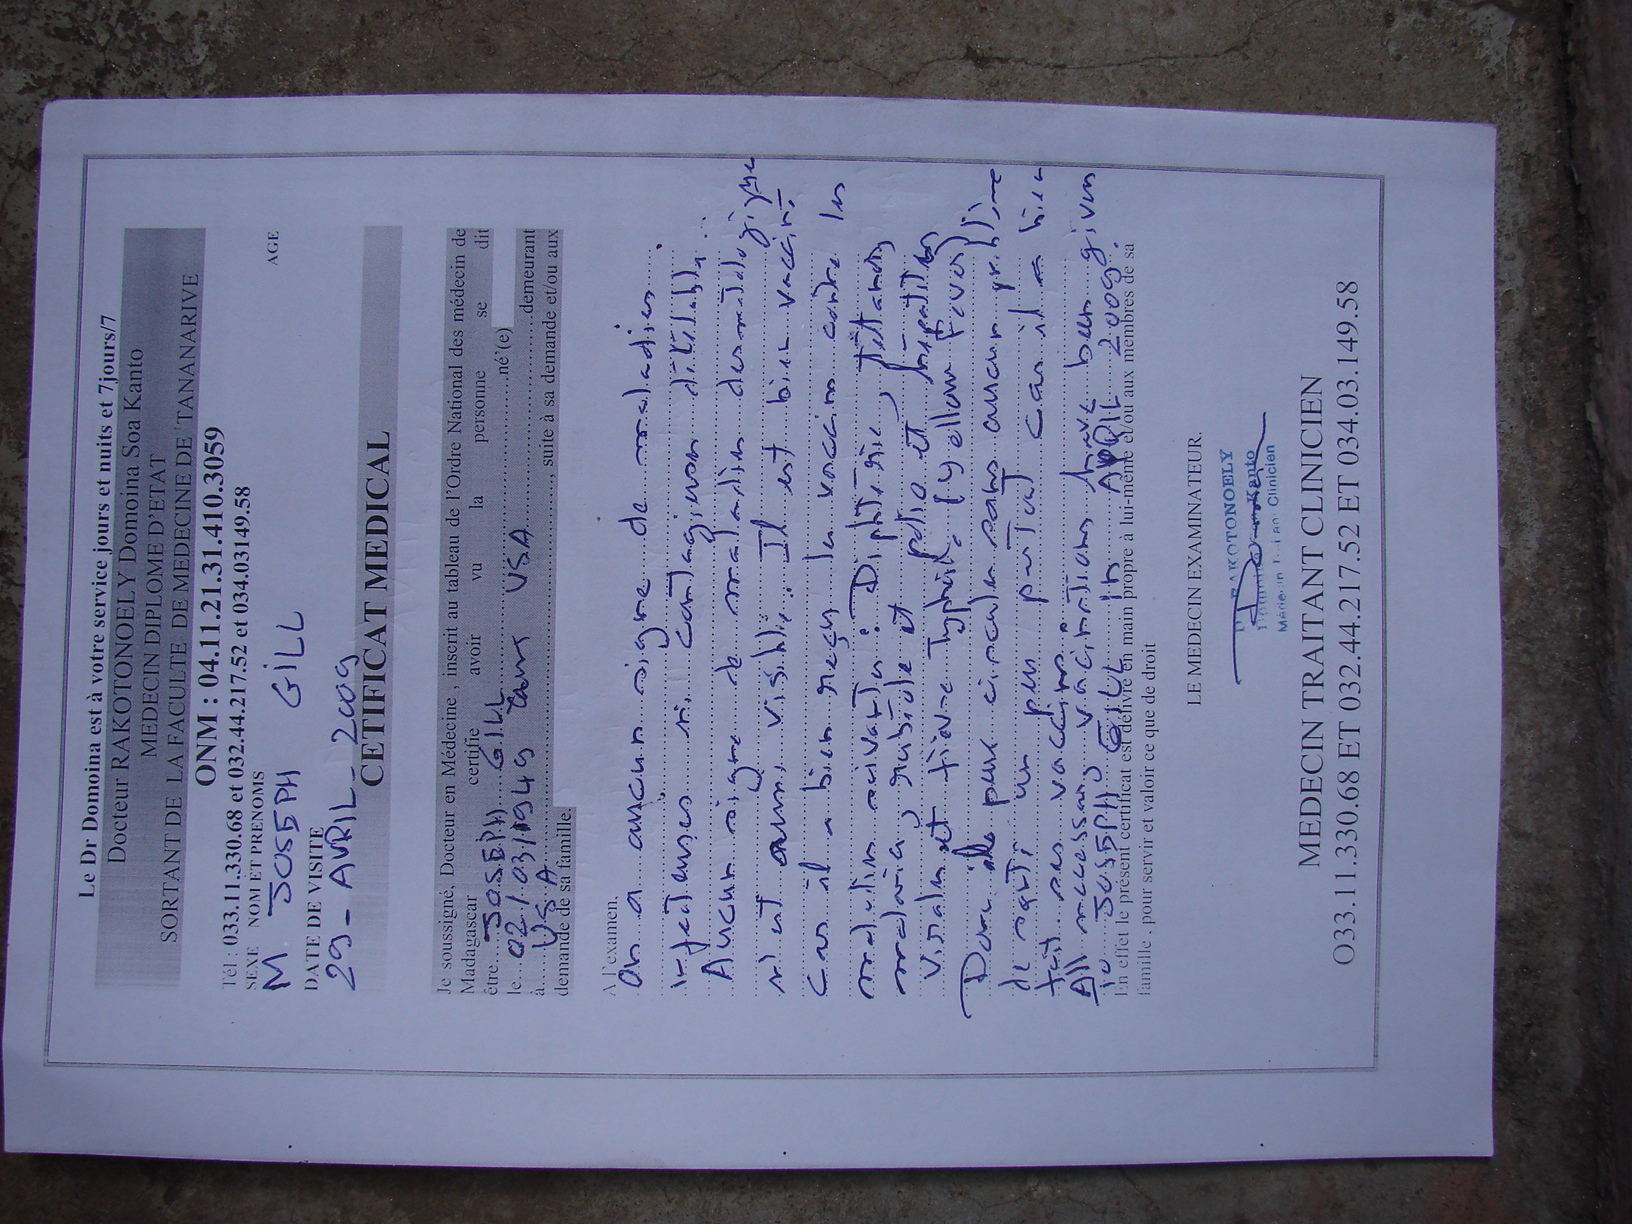 Le Dr Domoina est à votre service jours et nuits et 7jours/7
Docteur RAKOTONOELY Domoina Soa Kanto
MEDECIN DIPLOME D'ETAT
SORTANT DE LA FACULTE DE MEDECINE DE TANANARIVE
ONM : 04.11.21.31.410.3059
Tél : 033.11.330.68 et 032.44.217.52 et 034.03149.58
SEXE NOM ET PRENOMS AGE
M. JOSEPH GILL
DATE DE VISITE
29 - AVRIL - 2009
CETIFICAT MEDICAL
Je soussigné, Docteur en Médecine , inscrit au tableau de l'Ordre National des médecin de
Madagascar certifie avoir vu la personne se dit
être JOSEPH GILL né'(e)
le 02/03/1949 dans USA demeurant
à USA, suite à sa demande et/ou aux
demande de sa famille.
A l'examen,
On a aucun signe de maladies
infectieuses ni contagieuses
Aucun signe de maladies dermatologique
n'est visible. Il est bien vacciné
Car il a bien reçu les vaccins contre les
maladies suivantes : Diphtérie, tétanos,
malaria, rubéole et polio et hépatites
Virales et fièvre typhoïde (yellow Fever)
Donc il peut circuler sans aucun problème
de santé un peu partout car il a bien
fait ses vaccins.
All necessary vaccinations have been given
to JOSEPH GILL in APRIL 2009.
En effet le présent certificat est délivré en main propre à lui-même et/ou aux membres de sa
famille , pour servir et valoir ce que de droit
LE MEDECIN EXAMINATEUR.
RAKOTONOELY
Kanto
Clinicien
MEDECIN TRAITANT CLINICIEN
O33.11.330.68 ET 032.44.217.52 ET 034.03.149.58